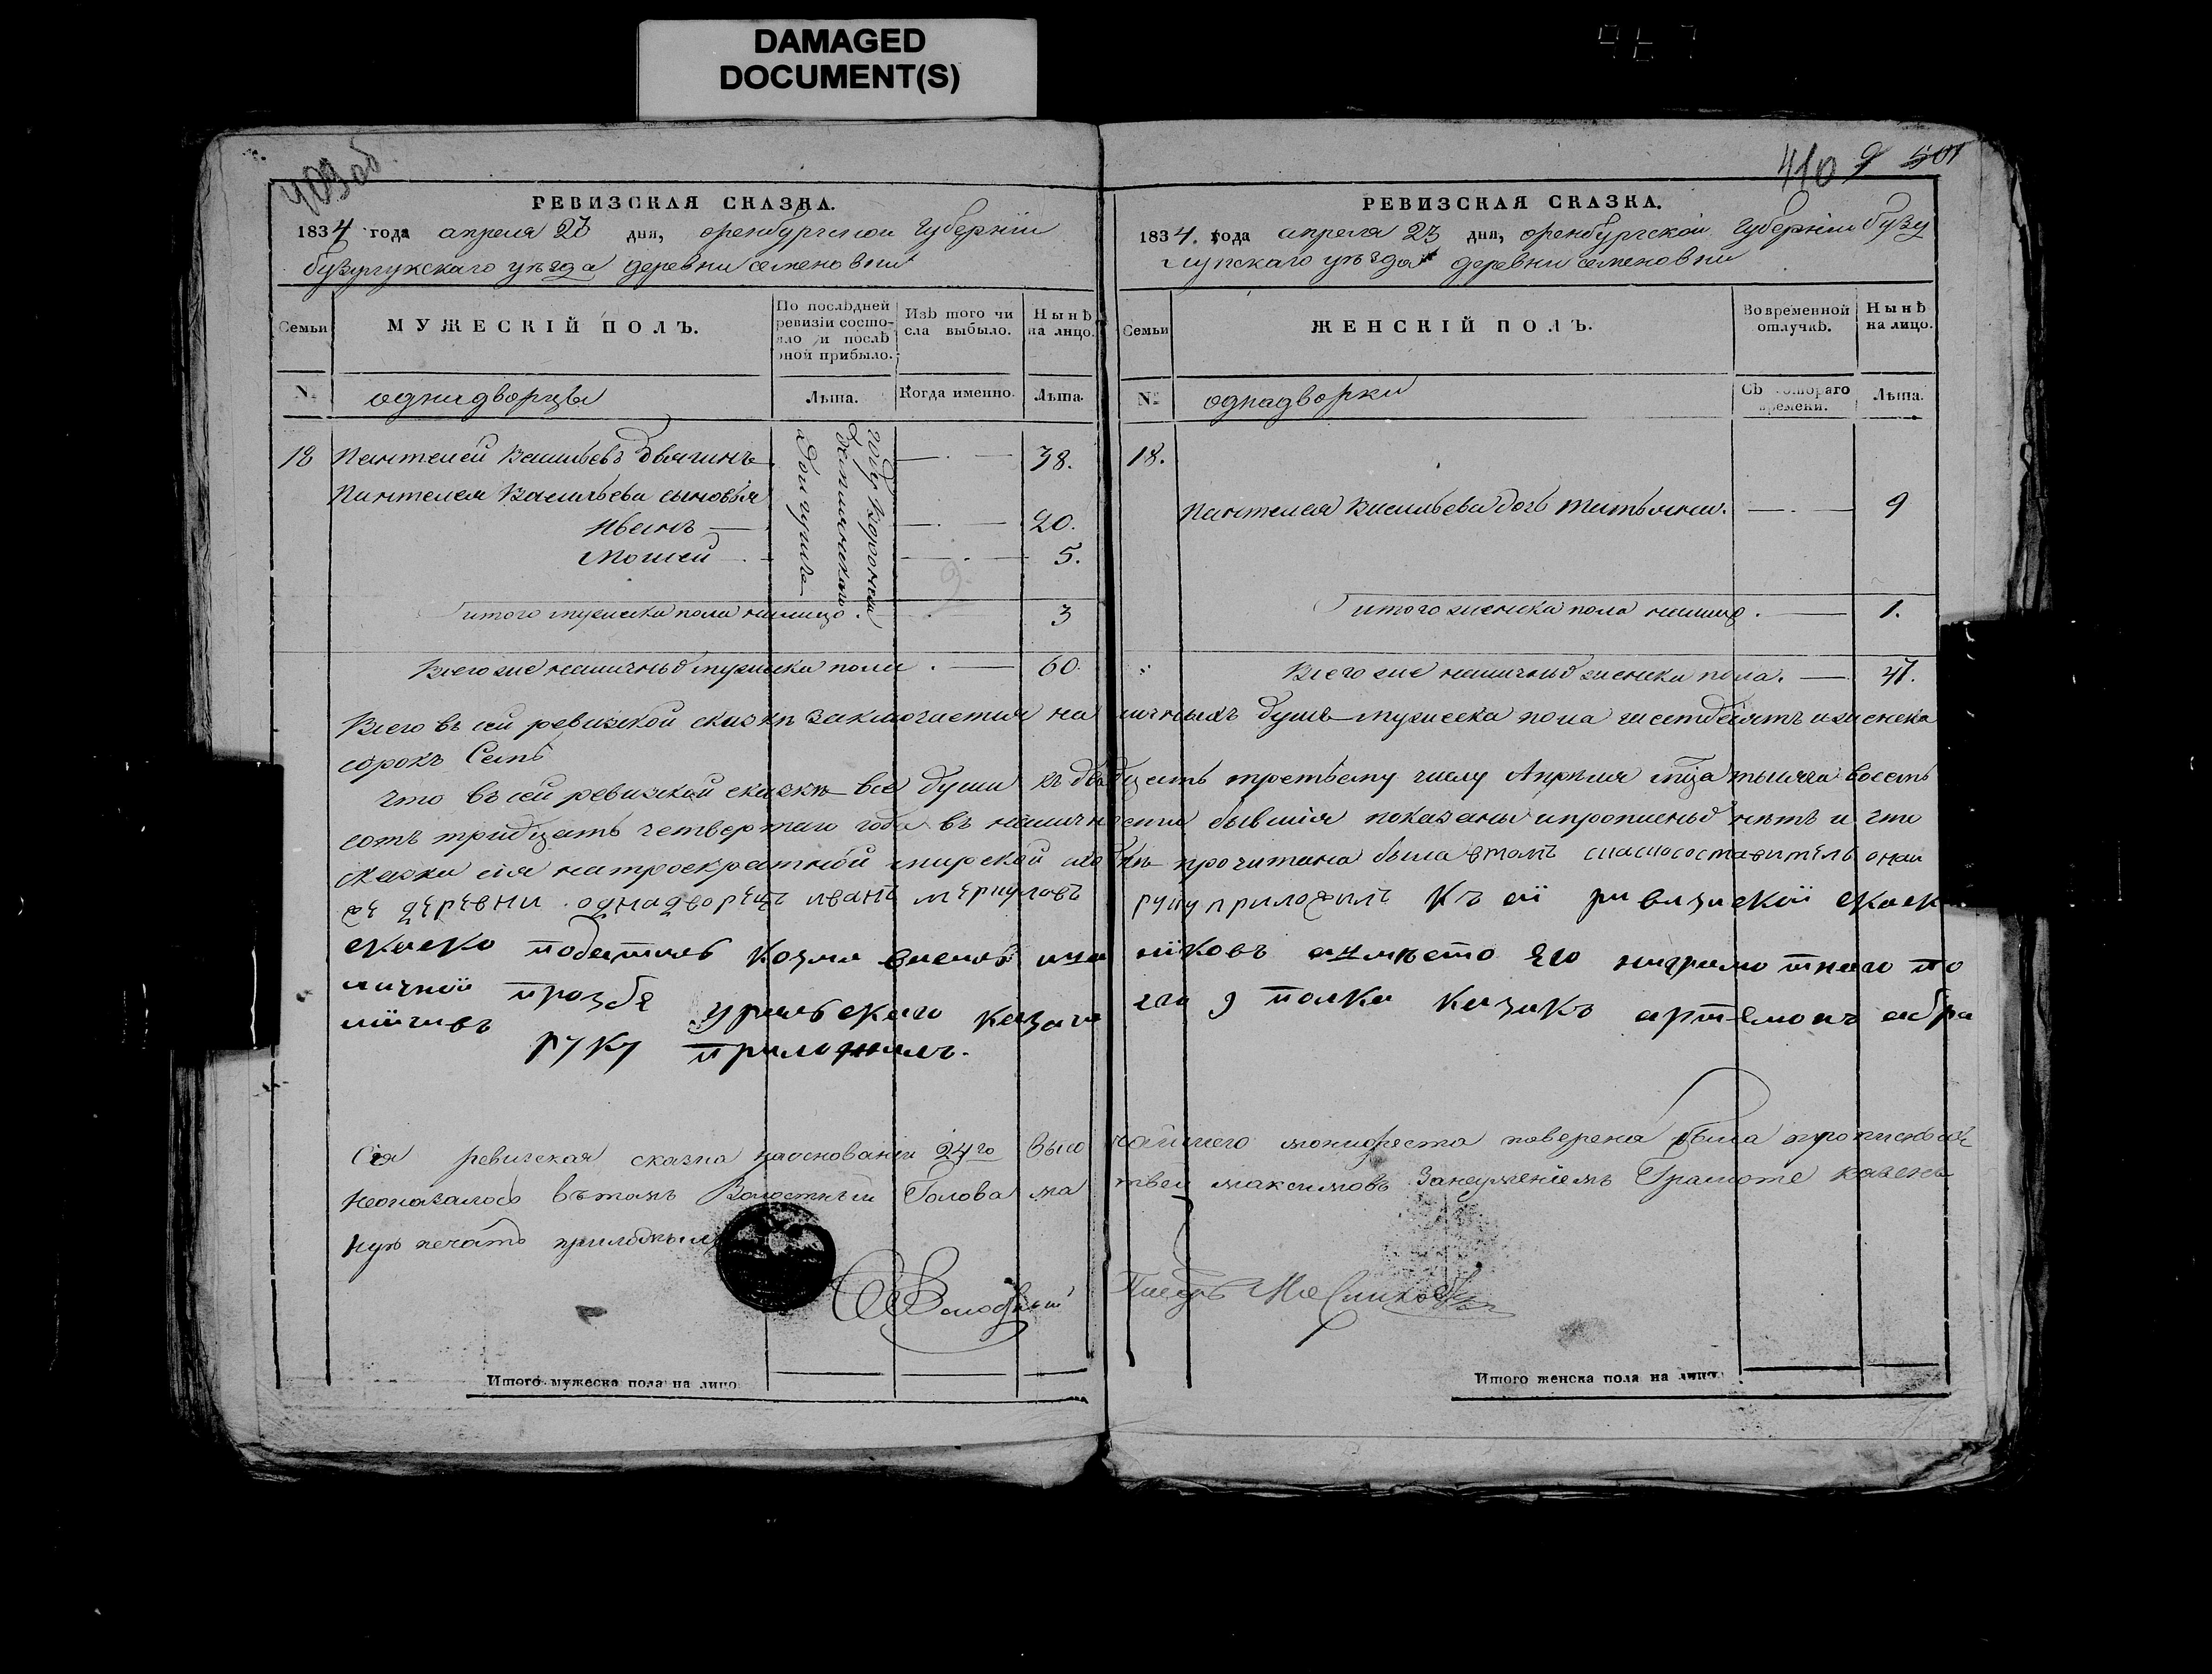 DAMAGED
DOCUMENT(S)
403 об.
РЕВИЗСКАЯ СКАЗКА.
1834 года апреля 23 дня, оренбургской губернїи
бузулукскаго уѣзда деревни семеновки
Семьи
МУЖЕСКІЙ ПОЛЪ.
По послѣдней
ревизіи состо-
яло и послѣ
оной прибыло.
Изъ того чи
сла выбыло.
Нынѣ
на лицо.
№
однадворцы
Лѣта.
Когда именно.
Лѣта.
18 Пантелей Васильевъ 38.
Пантелея Васильева сыновья
Иванъ 20.
Мосей 5.
итого мужеска пола налицо. 3
Всего же наличныхъ мужеска пола. 60.
410 9 501
РЕВИЗСКАЯ СКАЗКА.
1834. года апреля 23 дня, оренбургской губернїи бузу
лукскаго уѣзда деревни семеновки
Семьи
ЖЕНСКІЙ ПОЛЪ.
Во временной
отлучкѣ.
Нынѣ
на лицо.
№
однадворки
Съ котораго
времени.
Лѣта.
18.
Пантелея Васильева дочь Татьяна. 9
итого женска пола налицо. 1.
Всего же наличныхъ женска пола. 47.
Всего въ сей ревизской сказкѣ заключается наличныхъ душъ мужеска пола шестдесятъ и женска
сорокъ Семь
Что въ сей ревизской сказкѣ все души къ двадцать третьему числу Апреля мца тысяча восемь
сотъ тридцать четвертаго года въ наличности бывшїя показаны и прописныхъ нѣтъ и что
сказка сїя на троекратной мирской сходкѣ прочитана была втомъ составитель оной
же деревни однадворецъ иванъ меркуловъ руку приложилъ Къ сей ревизской
податель Козма аумѣсто его неграмотнаго по
личной прозбѣ уральскаго казачего 9 полка казакъ артемонъ
руку приложилъ.
Сїя ревизская сказка наоснованїи 24го высочайшего монифеста поверена была прописныхъ
неоказалось вътомъ Волостный Голова матвей максимовъ Занеумѣнїемъ Грамоте казен
ную печать приложилъ
Итого мужеска пола на лицо
Итого женска пола на лицо